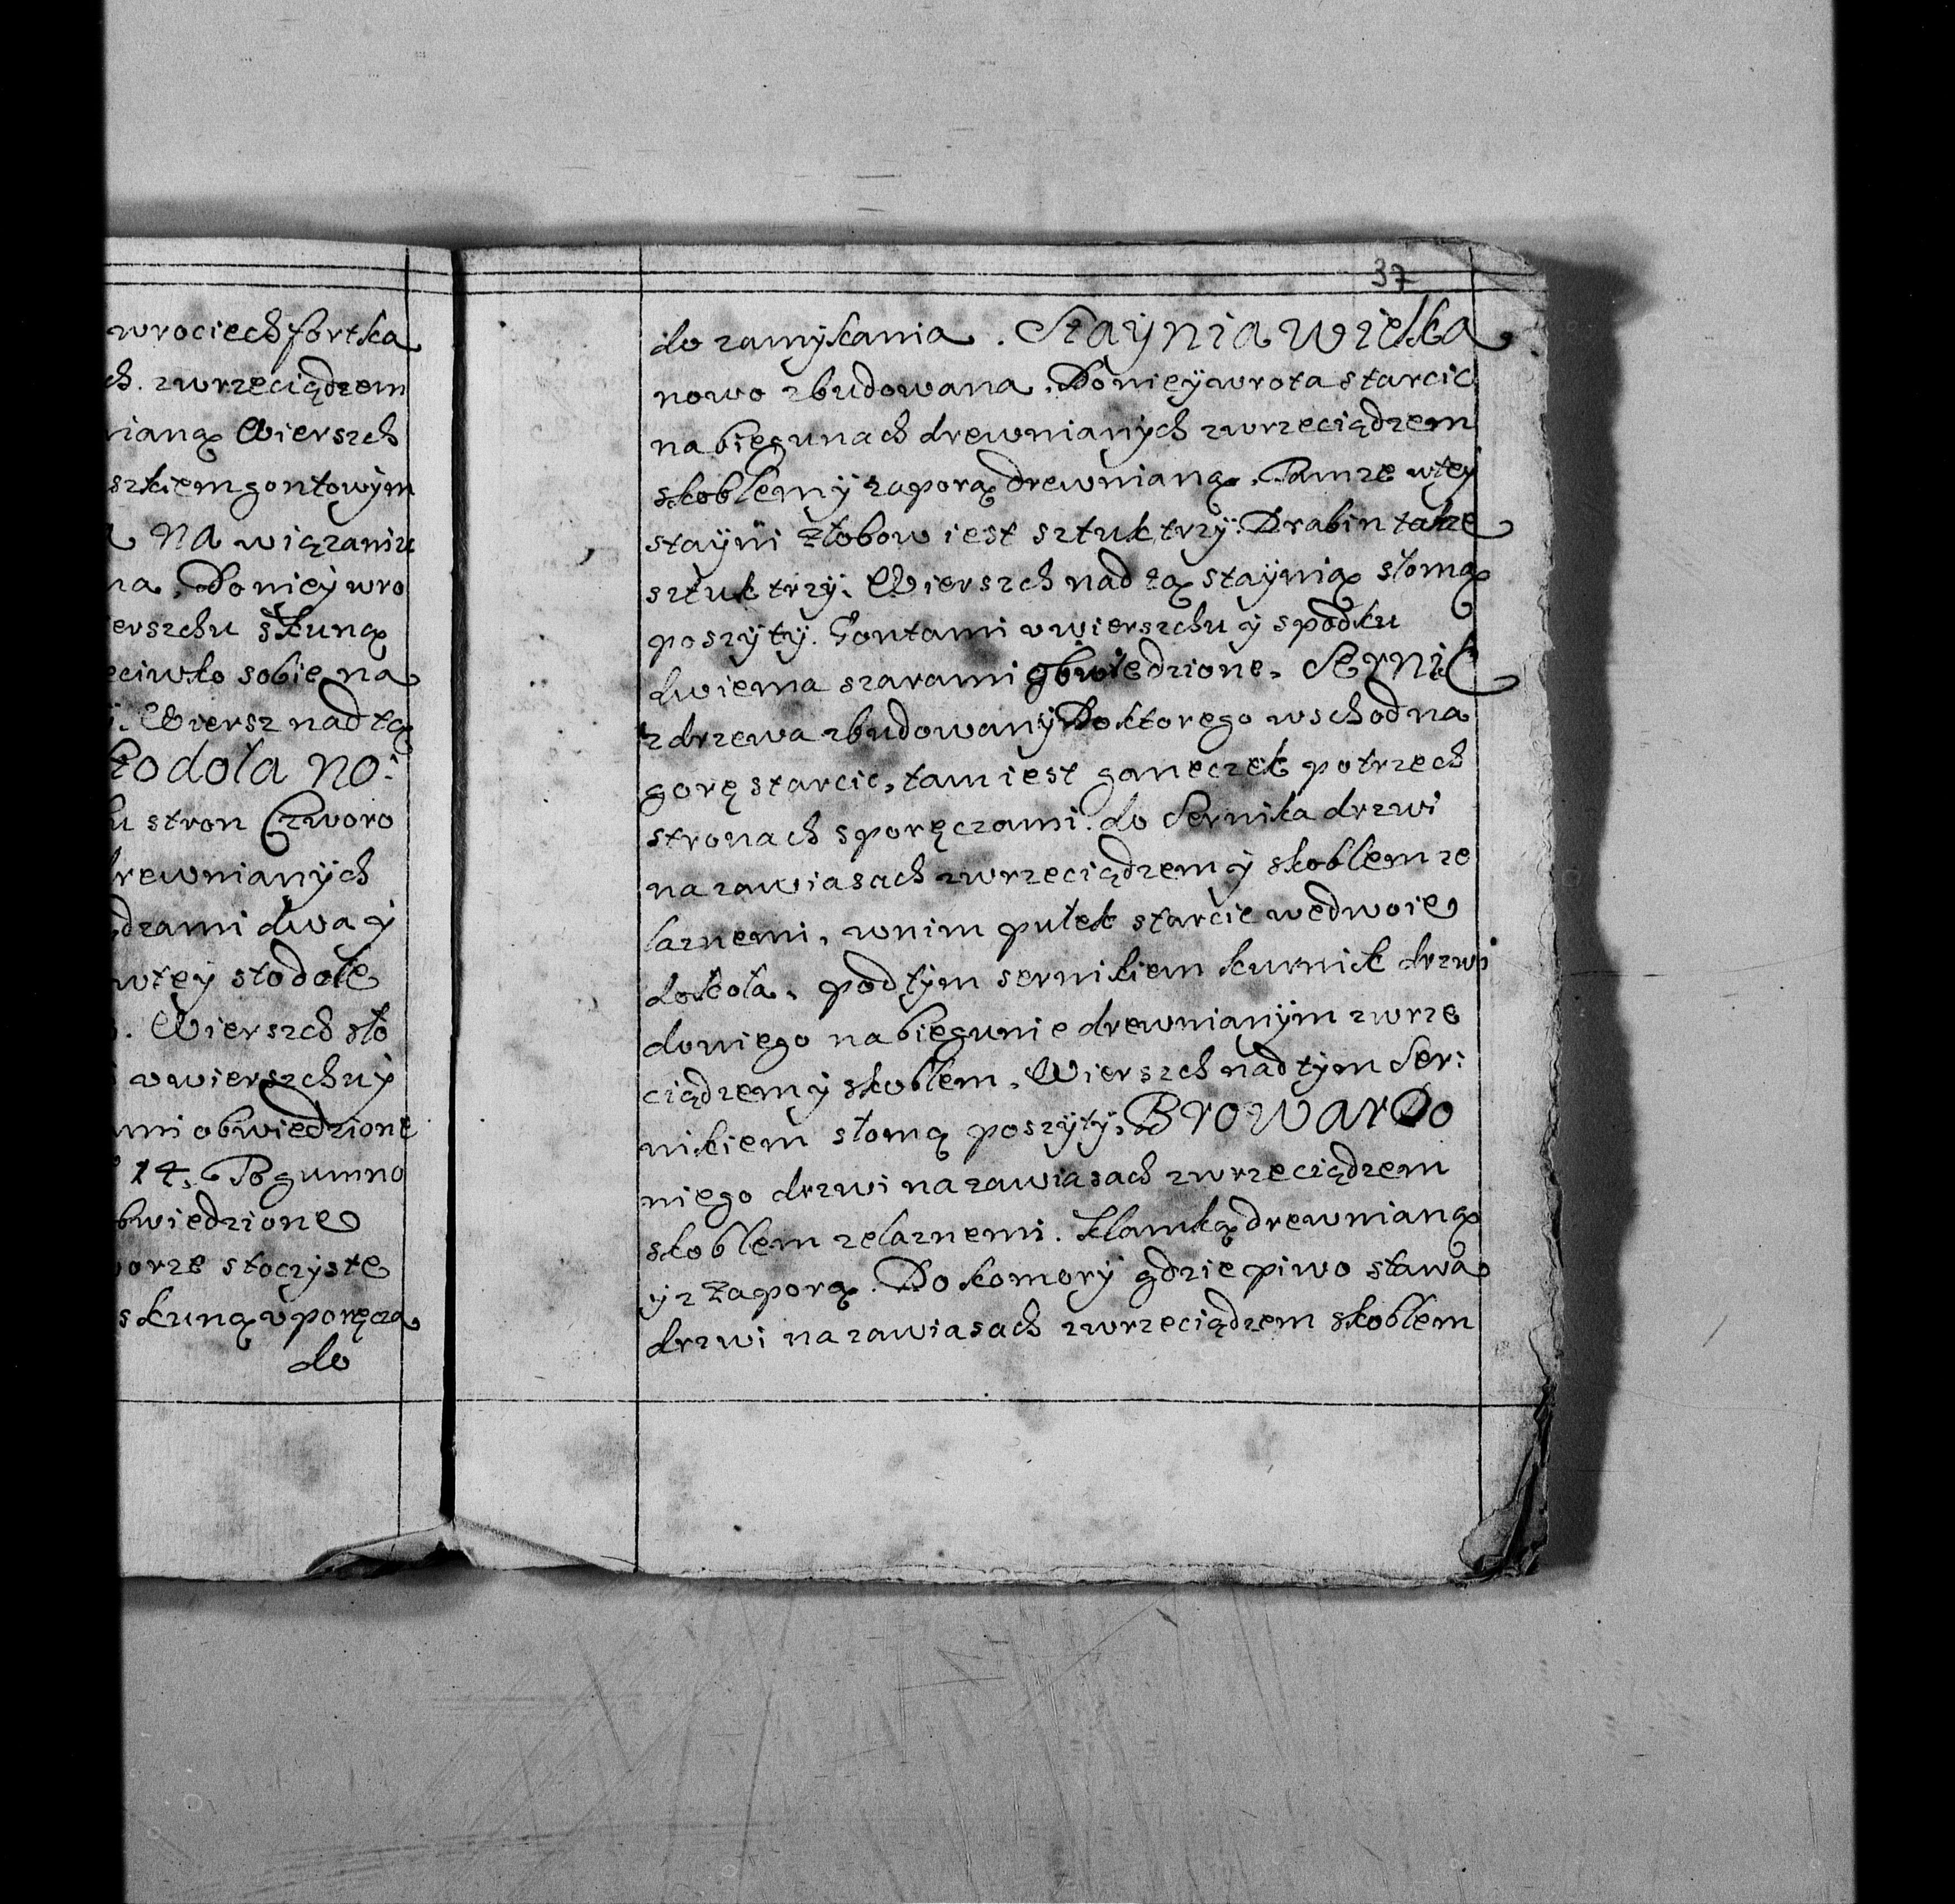 wrociech fortka
ch. zwrzeciądzem
nianą Wierszch
szkiem gontowym
A NA wiązaniu
na. Do niey wro
ierszchu skuną
eciwko sobie na
i. Wiersz nad tą
Stodoła no:
u stron Czworo
drewnianych
dzami dwa y
wtey stodole
. Wierszch sło
vwierszchu y
ami obwiedzione
14. Pogumno
obwiedzione
worze stoczyste
skuną vporęcza
do
37
do zamykania. Staynia wielka
nowo zbudowana. Do niey wrota starcic
na biegunach drewnianych zwrzeciądzem
skoblem y zaporą drewnianą. Tamze wtey
stayni żłobow iest sztuk trzy. Drabin takze
sztuk trzy. Wierszch nad tą staynią słomą
poszyty. Gontami vwierszchu y spodku
dwiema szarami obwiedzione. Sernik
z drzewa zbudowany Do ktorego wschod na
gorę starcic, tam iest ganeczek potrzech
stronach sporęczami. do Sernika drzwi
na zawiasach zwrzeciądzem y skoblem ze
laznemi, wnim pułek starcic wedwoie
dokoła. pod tym sernikiem kurnik drzwi
do niego na biegunie drewnianym zwrze
ciądzem y skoblem. Wierszch nad tym Ser:
nikiem słomą poszyty. Browar Do
niego drzwi na zawiasach zwrzeciądzem
skoblem zelaznemi. Klamką drewnianą
y z zaporą. Do komory gdzie piwo stawa
drzwi na zawiasach zwrzeciądzem skoblem